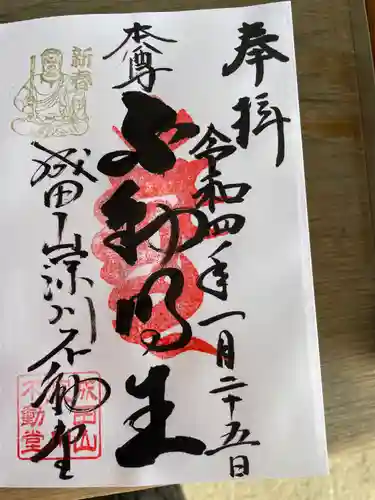 奉拝
令和四年一月二十五日
本尊
不動明王
成田山深川不動堂
新春
成田山
不動堂